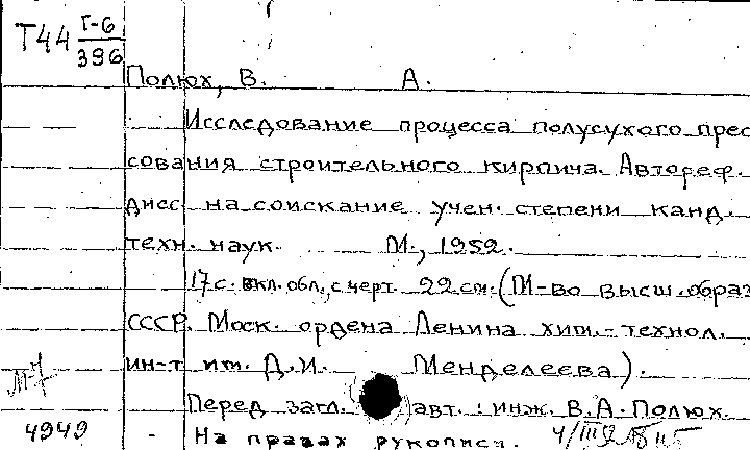 Т44 Г-6
396
Полюх, В. А.
Исследование процесса полусухого прес
сования строительного кирпича. Автореф.
дисс. на соискание учен. степени канд.
техн. наук. М., 1952.
17 с. вкл. обл., с черт. 22 см. (М-во высш. образ
СССР. Моск. ордена Ленина хим.-технол.
ин-т им. Д.И. Менделеева).
Перед загл. авт.: инж. В.А. Полюх.
4949 На правах рукописи.